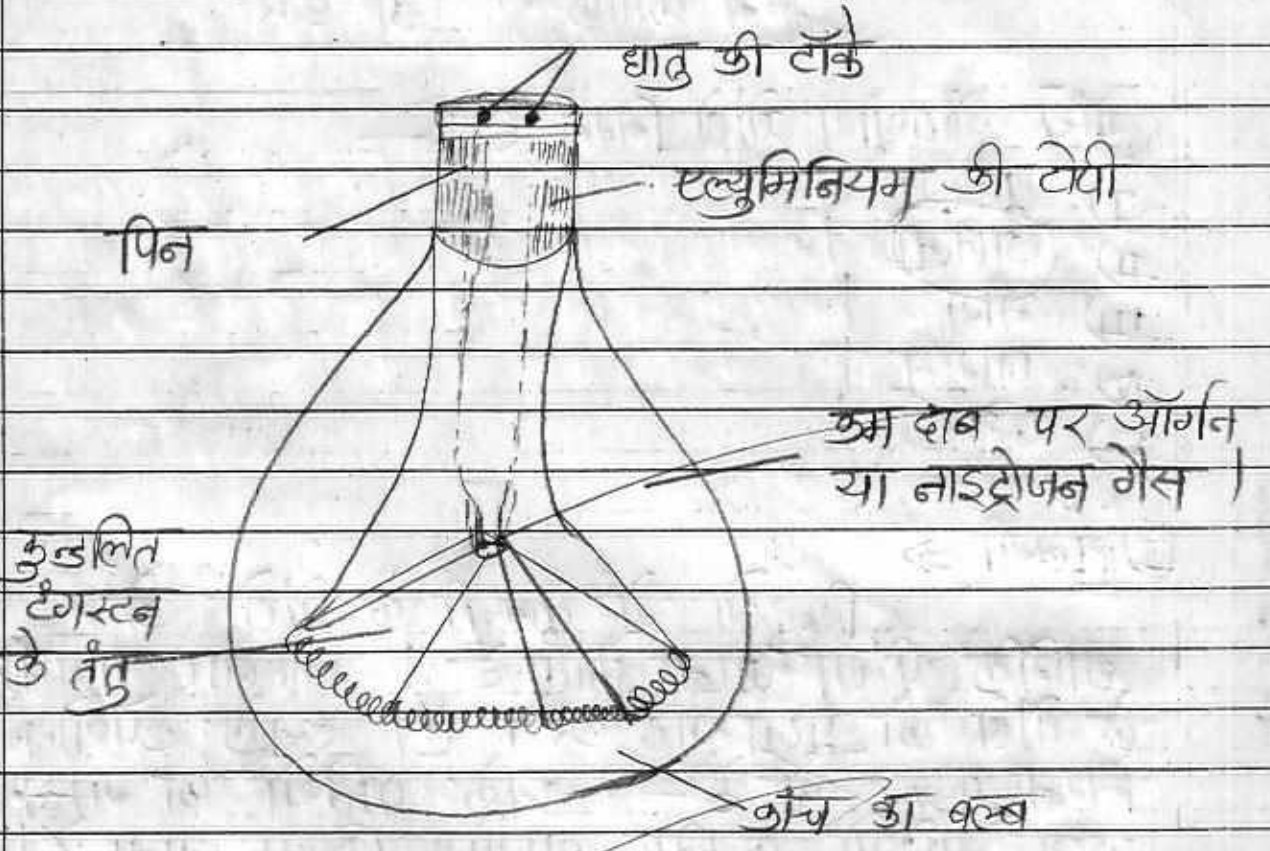 धातु की टाँके
एल्युमिनियम की टोपी
पिन
कम दाब पर ऑर्गन
या नाइट्रोजन गैस ।
कुन्डलित
टंगस्टन
के तंतु
काँच का बल्ब